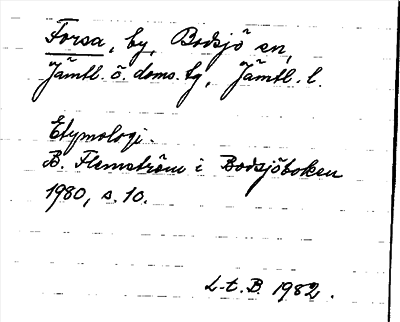 Forsa, by, Bodsjö sn,
Jämtl. ö. doms. tg, Jämtl. l.
Etymologi.
B. Flemström i Bodsjöboken
1980, s. 10.
L-t. B. 1982.